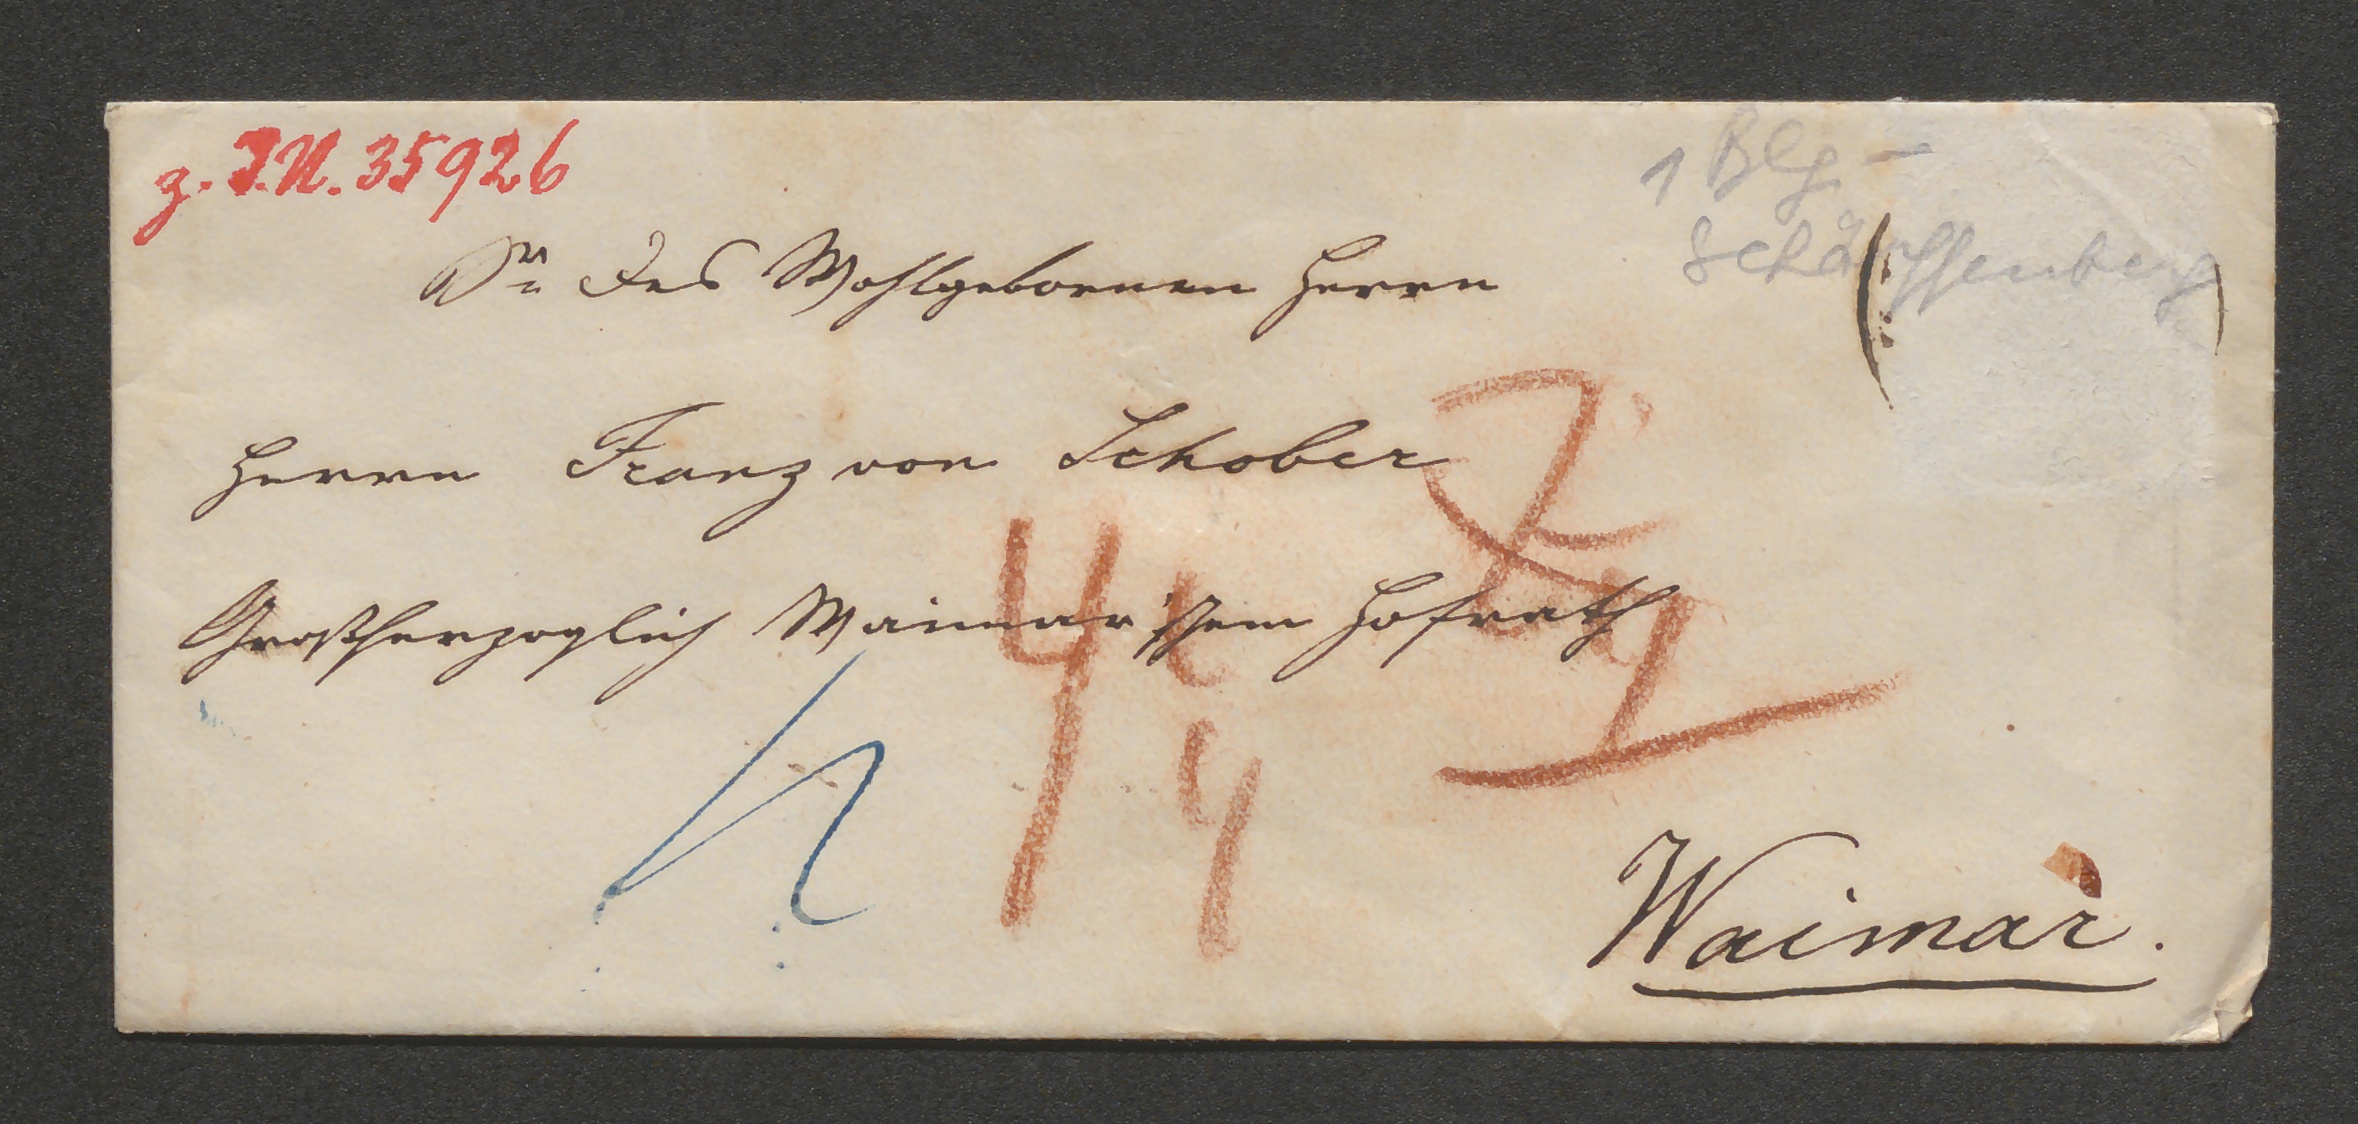 z. I.N. 35926
1 Blg –
Schärffenberg
Sr des Wohlgebornen Herrn
Herrn Franz von Schober
Großherzoglich Waimar'schem Hofrath
4
4
Waimar.